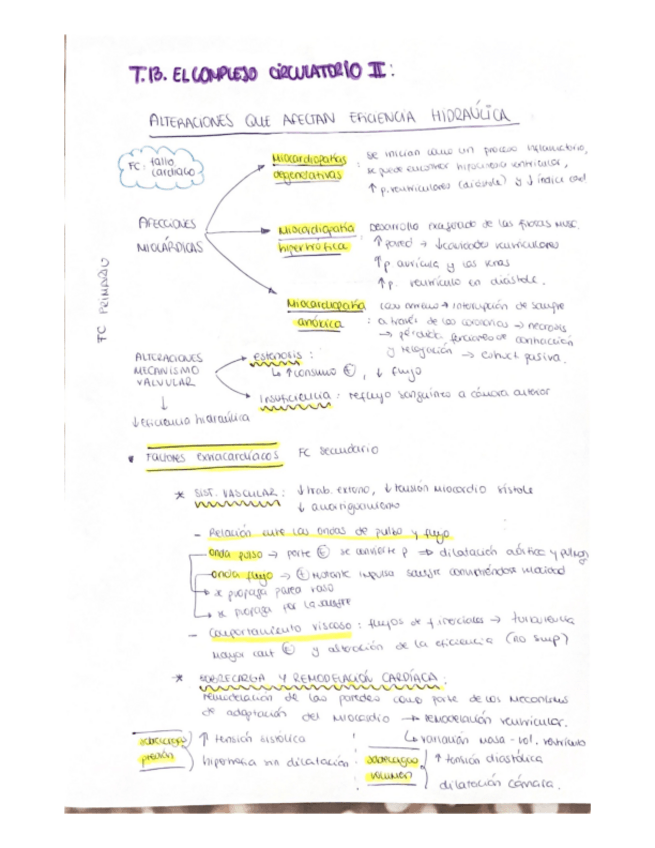 T.13. EL COMPLEJO CIRCULATORIO II:
ALTERACIONES QUE AFECTAN EFICIENCIA HIDRAÚLICA
FC: fallo cardiaco
FC PRIMARIO
AFECCIONES MIOCÁRDICAS
Miocardiopatías degenerativas : se inician como un proceso inflamatorio,
se puede encontrar hipertrofia ventricular,
↑ p. ventriculares (diástole) y ↓ índice card
Miocardiopatía hipertrófica : Desarrollo exagerado de las fibras musc.
↑ pared → ↓ cavidades ventriculares
↑ p aurícula y las venas
↑ p. ventrículo en diástole.
Miocardiopatía anóxica : → interrupción de sangre
a través de las coronarias → necrosis
→ pérdida funciones de contracción
y relajación → conduct pasiva.
ALTERACIONES MECANISMO VALVULAR
↓
↓ Eficiencia hidraúlica
estenosis :
↳ ↑ consumo E, ↓ flujo
Insuficiencia : reflujo sanguíneo a cámara anterior
Factores extracardíacos FC secundario
* SIST. VASCULAR : ↓ trab. externo, ↓ tensión miocardio sístole
↓
- Relación entre las ondas de pulso y flujo
onda pulso → parte E se convierte p ⇒ dilatación aórtica y pulmon
onda flujo → E restante impulsa sangre velocidad
→ se propaga pared vaso
→ se propaga por la sangre
- Comportamiento viscoso : flujos de f. inerciales → turbulencia
mayor cant E y alteración de la eficiencia (no smp)
* SOBRECARGA Y REMODELACIÓN CARDÍACA :
remodelación de las paredes como parte de los mecanismos
de adaptación del miocardio → remodelación ventricular.
↳ variación masa - vol. ventrículo
sobrecarga presión ↑ tensión sistólica
hipertrofia sin dilatación
sobrecarga volumen ↑ tensión diastólica
dilatación cámara.